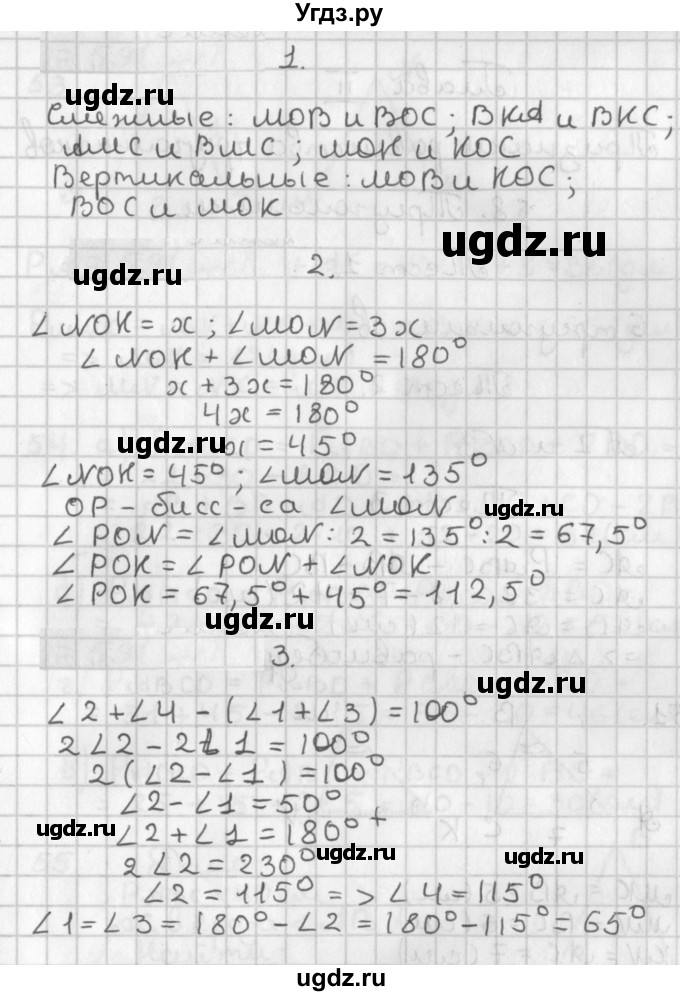 Угдз.ру
1.
ugdz.ru
Смежные: MOB и BOC; BKA и BKC;
AMC и BMC; MOK и KOC
Вертикальные: MOB и KOC;
BOC и MOK
ugdz.ru
ugdz.ru
2.
∠NOK = x; ∠MON = 3x
∠NOK + ∠MON = 180°
x + 3x = 180°
4x = 180°
ugdz.ru
x = 45°
∠NOK = 45°; ∠MON = 135°
OP - бисс-са ∠MON
∠PON = ∠MON : 2 = 135° : 2 = 67,5°
∠POK = ∠PON + ∠NOK
∠POK = 67,5° + 45° = 112,5°
ugdz.ru
3.
ugdz.ru
∠2 + ∠4 - (∠1 + ∠3) = 100°
2∠2 - 2∠1 = 100°
2(∠2 - ∠1) = 100°
∠2 - ∠1 = 50°
ugdz.ru
∠2 + ∠1 = 180° +
2∠2 = 230°
ugdz.ru
ugdz.ru
∠2 = 115° => ∠4 = 115°
∠1 = ∠3 = 180° - ∠2 = 180° - 115° = 65°
ugdz.ru